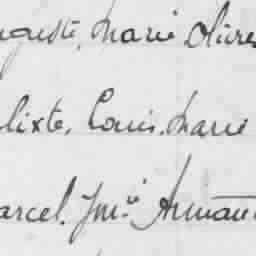 uguste, Marie Olivier
lixte, Louis, Marie
arcel, Jm.ie Armand